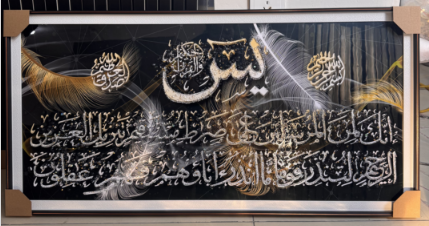 يس
إنك لمن المرسلين على صراط مستقيم تنزيل العزيز
الرحيم لتنذر قوما ما أنذر آباؤهم فهم غفلون